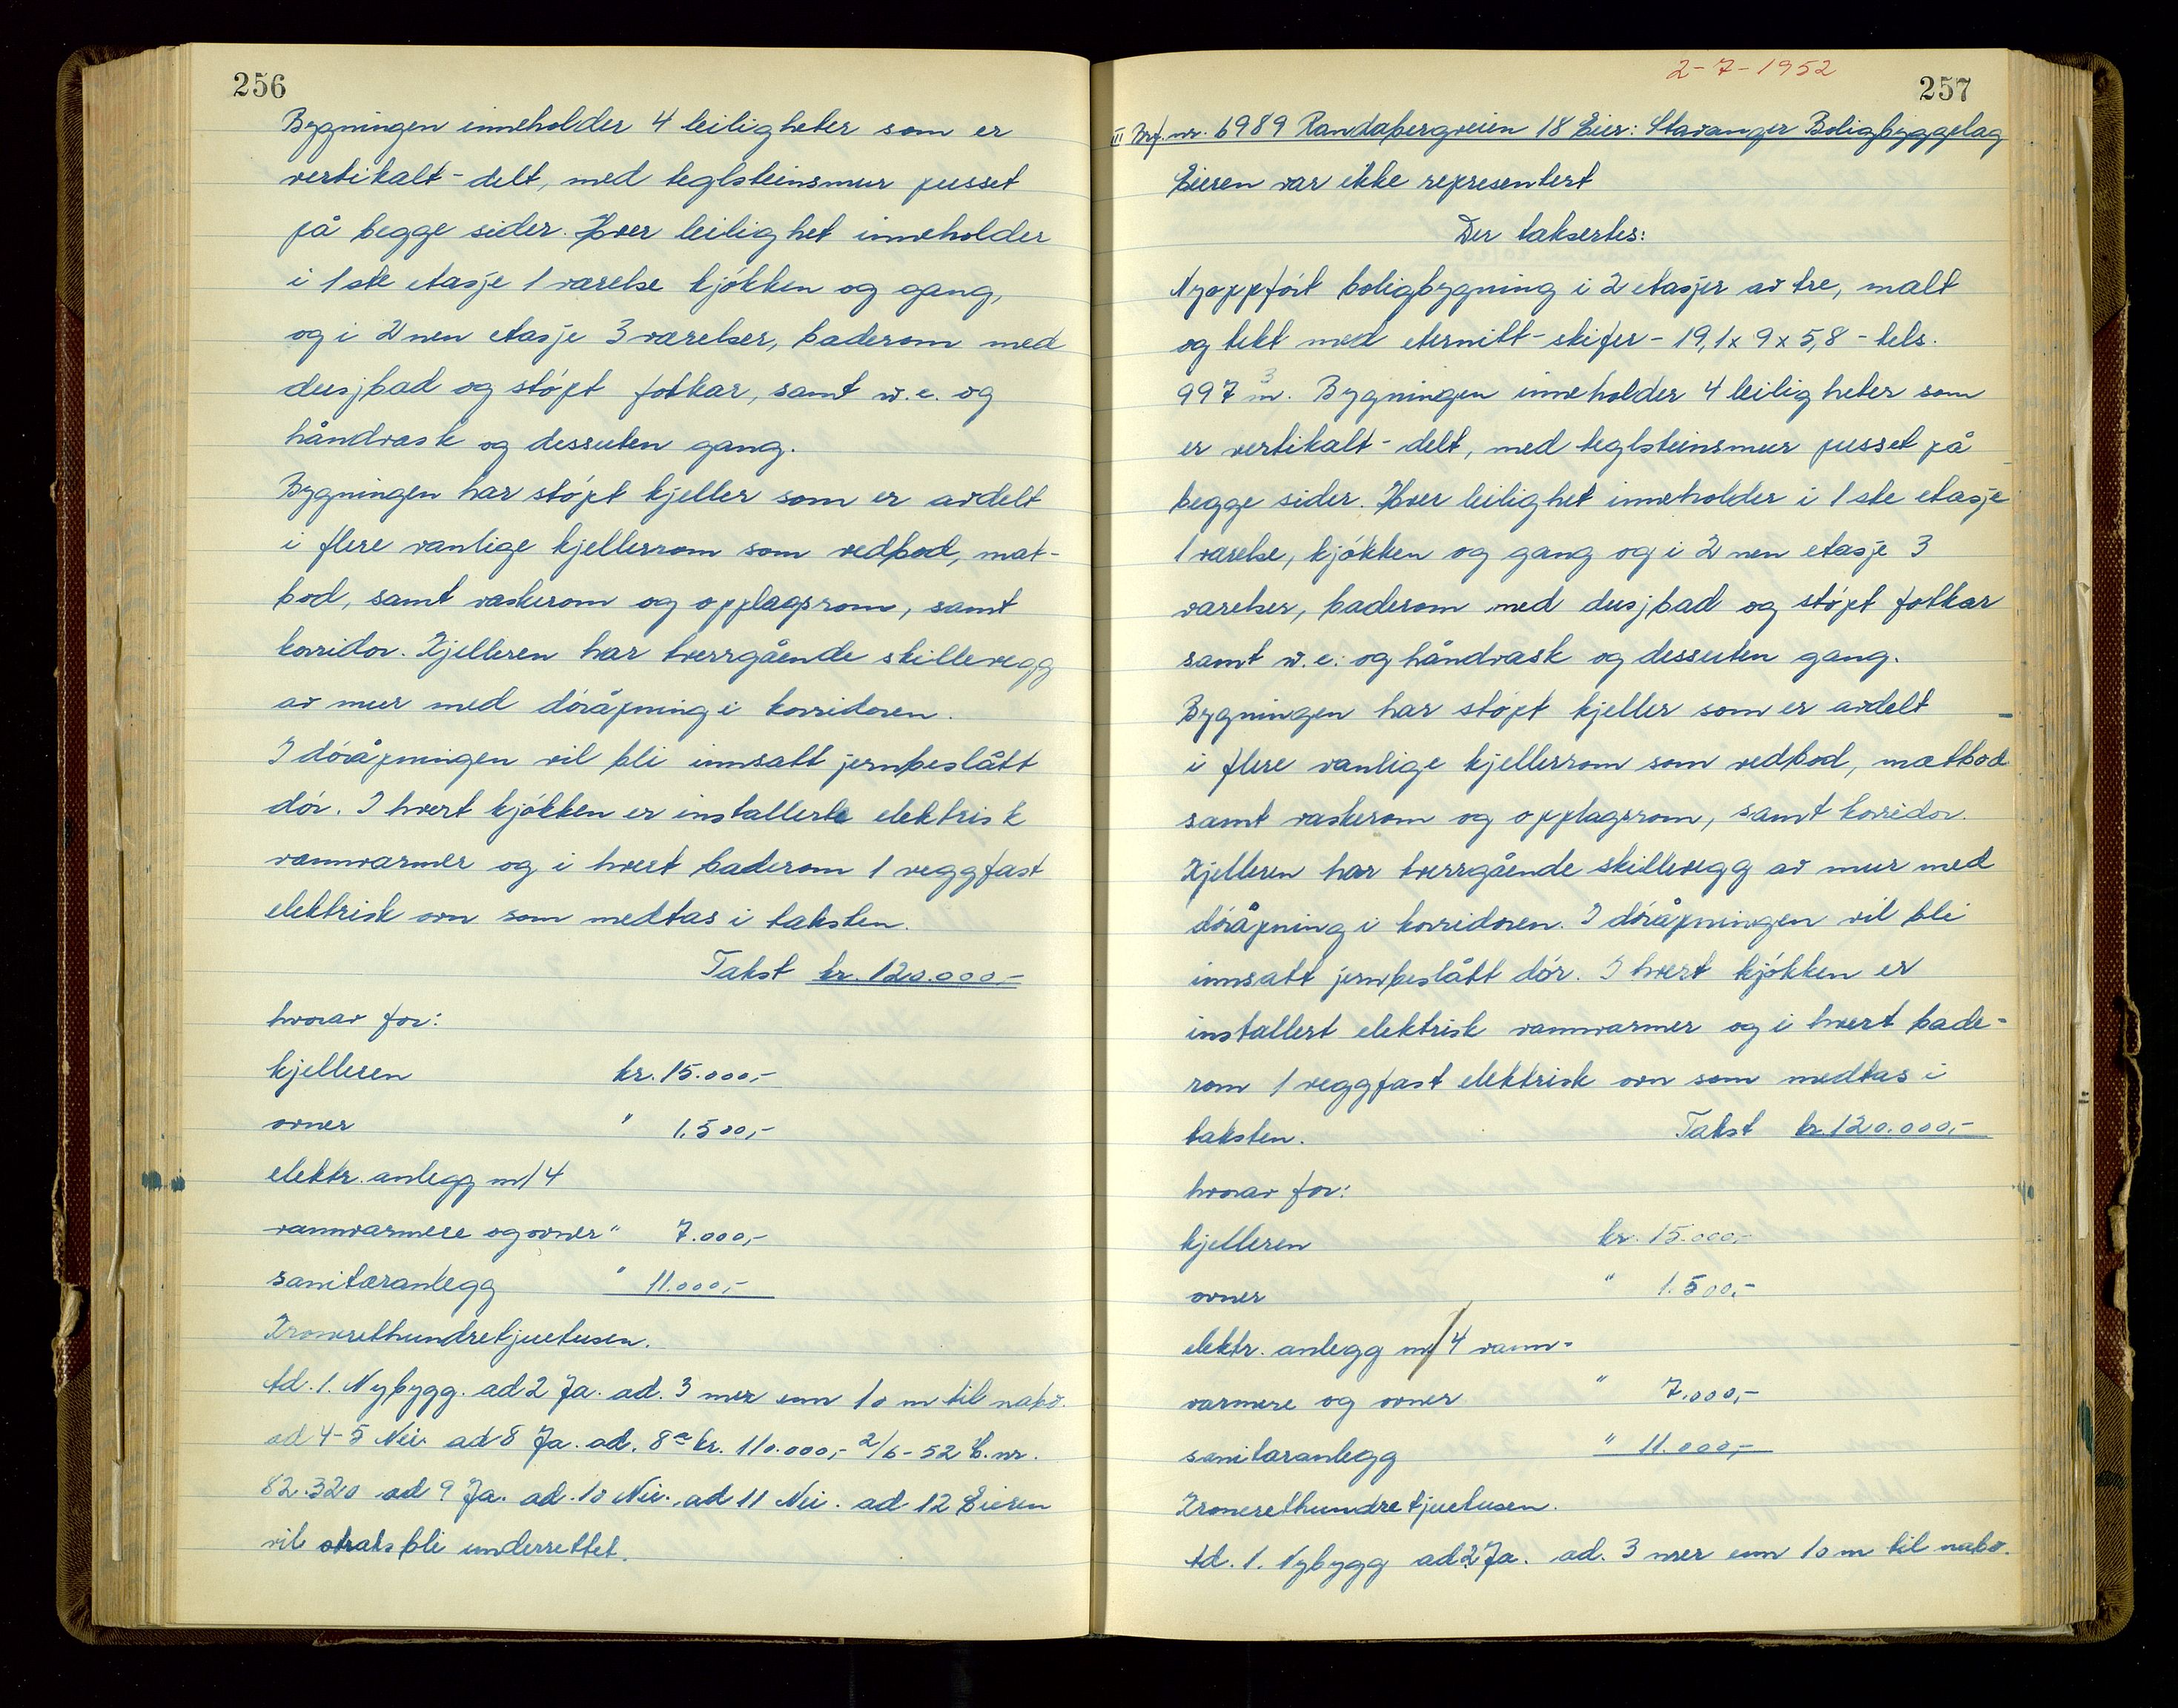 256
Bygningen inneholder 4 leiligheter som er
vertikalt-delt, med teglsteinsmur pusset
på begge sider. Hver leilighet inneholder
i 1ste etasje 1 værelse kjøkken og gang,
og i 2nen etasje 3 værelser, baderom med
dusjbad og støpt fotkar, samt w.c. og
håndvask og dessuten gang.
Bygningen har støpt kjeller som er avdelt
i flere vanlige kjellerrom som vedbod, mat-
bod, samt vaskerom og opplagsrom, samt
korridor. Kjelleren har tverrgående skillevegg
av mur med døråpning i korridoren.
I døråpningen vil bli innsatt jernbeslått
dør. I hvert kjøkken er installerte elektrisk
vannvarmer og i hvert baderom 1 veggfast
elektrisk ovn som medtas i taksten.
Takst kr. 120.000,-
hvorav for:
kjelleren kr. 15.000,-
ovner " 1.500,-
elektr. anlegg m/4
vannvarmere og ovner " 7.000,-
sanitæranlegg " 11.000,-
Kronerethundretjuetusen.
Ad. 1. Nybygg. ad 2 Ja. ad. 3 mer enn 10 m til nabo.
ad 4-5 Nei. ad 8 Ja. ad. 8a kr. 110.000,- 2/6-52 B.nr.
82.320 ad 9 Ja. ad. 10 Nei. ad 11 Nei. ad 12 Eieren
vil straks bli underrettet.
2-7-1952
257
III Brf. nr. 6989 Randabergveien 18 Eier: Stavanger Boligbyggelag
Eieren var ikke representert
Der takseres:
Nyoppført boligbygning i 2 etasjer av tre, malt
og tekt med eternitt-skifer - 19,1 x 9 x 5,8 - tels.
997 m³. Bygningen inneholder 4 leiligheter som
er vertikalt-delt, med teglsteinsmur pusset på
begge sider. Hver leilighet inneholder i 1ste etasje
1 værelse, kjøkken og gang og i 2nen etasje 3
værelser, baderom med dusjbad og støpt fotkar
samt w.c. og håndvask og dessuten gang.
Bygningen har støpt kjeller som er avdelt
i flere vanlige kjellerrom som vedbod, matbod
samt vaskerom og opplagsrom, samt korridor.
Kjelleren har tverrgående skillevegg av mur med
døråpning i korridoren. I døråpningen vil bli
innsatt jernbeslått dør. I hvert kjøkken er
installert elektrisk vannvarmer og i hvert bade-
rom 1 veggfast elektrisk ovn som medtas i
taksten. Takst kr. 120.000,-
hvorav for:
kjelleren kr. 15.000,-
ovner " 1.500,-
elektr. anlegg m/4 vann-
varmere og ovner " 7.000,-
sanitæranlegg " 11.000,-
Kronerethundretjuetusen.
Ad. 1. Nybygg ad 2 Ja. ad. 3 mer enn 10 m til nabo.